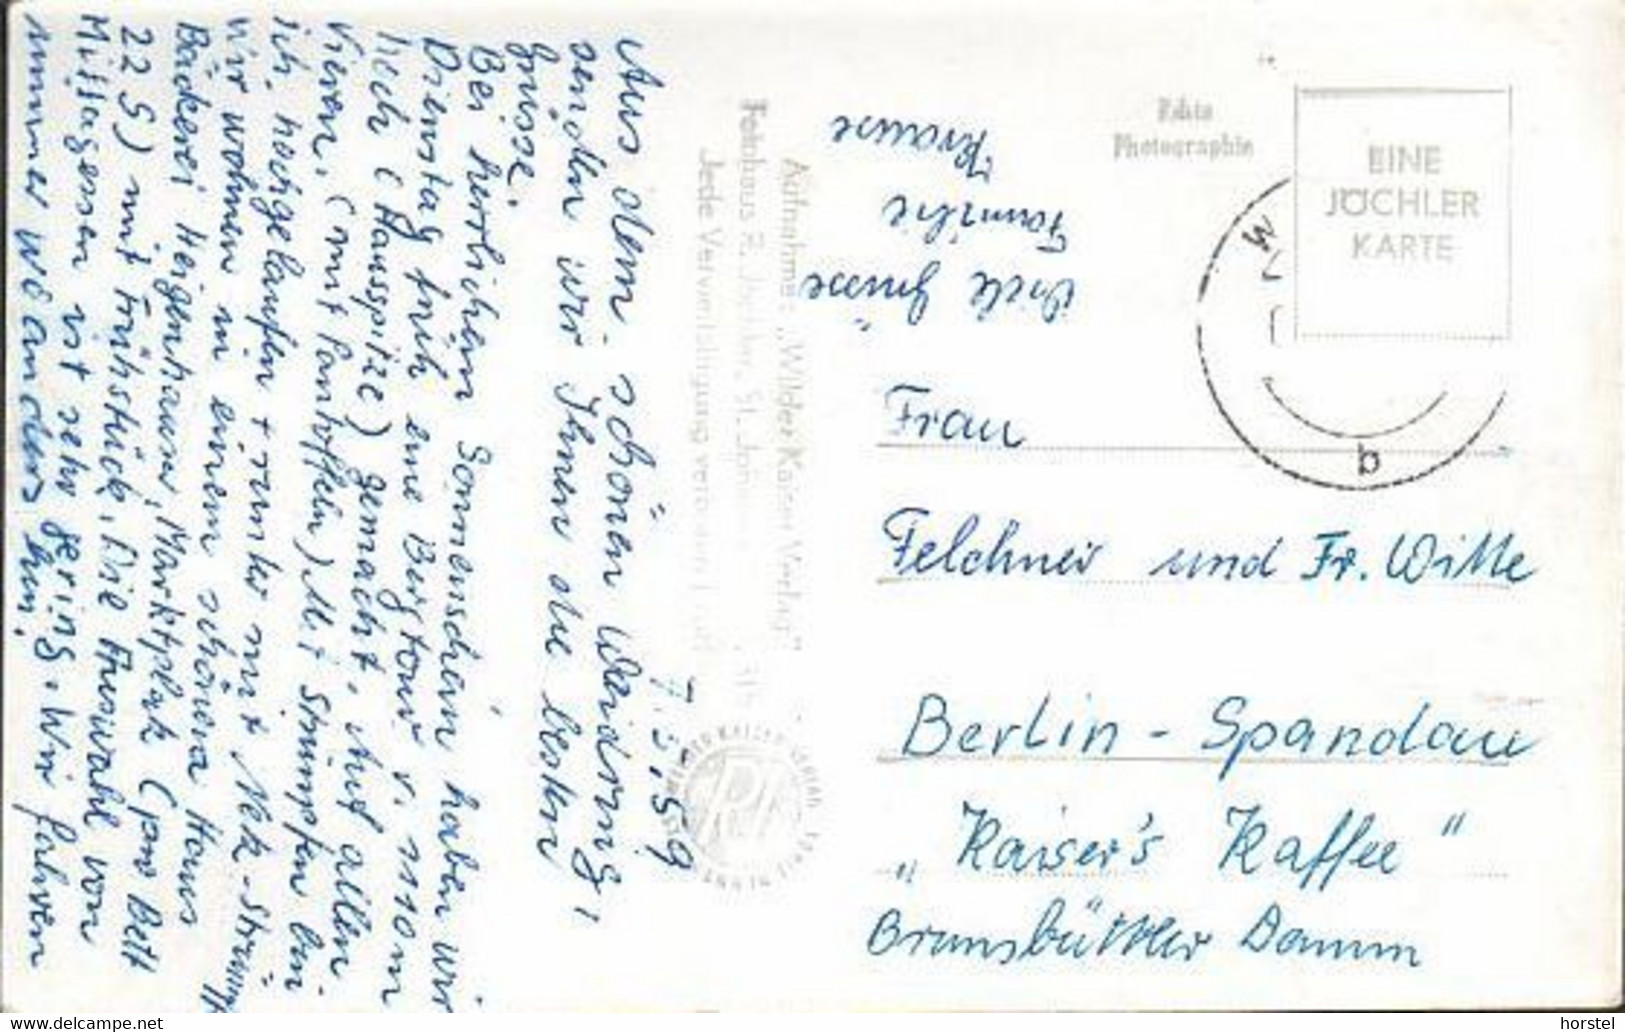 7.5.59
Aus dem schönen Waidring,
senden wir Ihnen die besten
Grüsse.
Bei herrlichem Sonnenschein haben wir
Dienstag früh eine Bergtour v. 1110 m
hoch (Hausspitze) gemacht. Auf allen
vieren, (mit Pantoffeln) Mit Strümpfen bin
ich hochgelaufen + runter mit
wir wohnen in einem schönen Haus
Bäckerei Heigenhauser, Marktplatz (pro Bett
22 S) mit Frühstück, Die Auswahl von
Mittagessen ist sehr gering. Wir fahren
immer wo anders hin.
Viele Grüsse
Familie
Krause
Aufnahme: „Wilder Kaiser Verlag"
Fotohaus R. Jöchler, St. Johann
Jede Vervielfältigung verboten
Echte
Photographie
EINE
JÖCHLER
KARTE
b
Frau
Felchner und Fr. Witte
Berlin - Spandau
„Kaiser's Kaffee"
Brunsbüttler Damm
horstel